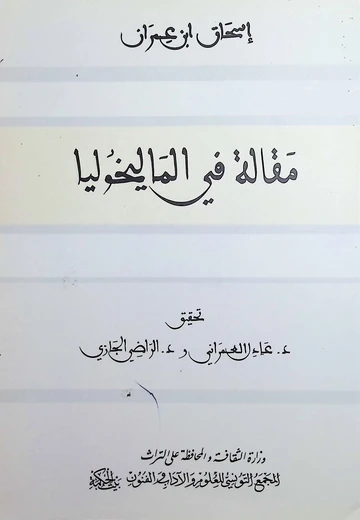 إسحاق ابن عمران
مقالة في الماليخوليا
تحقيق
د. عادل العمراني و د. الراضي الجازي
وزارة الثقافة والمحافظة على التراث
المجمع التونسي للعلوم والآداب والفنون بيت الحكمة